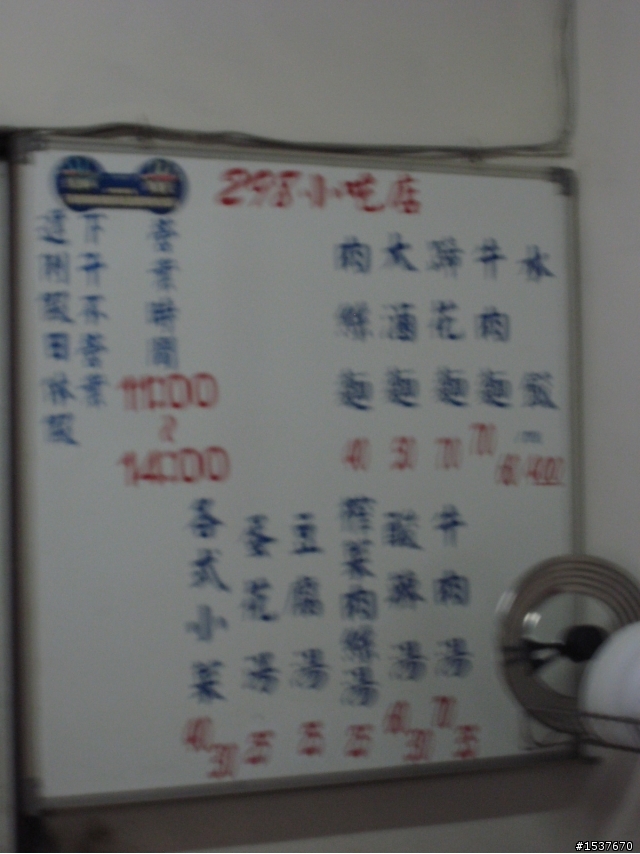 298小吃店
水餃
牛肉麵 70
蹄花麵 70
大滷麵 50
肉絲麵 40
營業時間
11:00
~
14:00
下午不營業
逢例假日休假
牛肉湯 70 35
酸辣湯 60 30
榨菜肉絲湯 25
豆腐湯 25
蛋花湯 25
各式小菜 40 30
#1537670